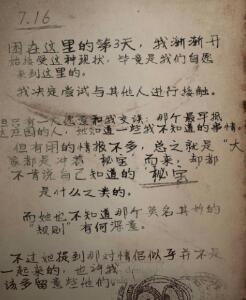 7.16
困在这里的第3天，我渐渐开
始接受这种现状，毕竟是我们自愿
来到这里的。
我决定尝试与其他人进行接触。
但只有一人愿意和我交谈：那个最早抵
达庄园的人，她知道一些我不知道的事情，
但有用的情报不多，总之就是“大
家都是冲着 秘宝 而来，却都
不肯说自己知道的 秘宝
是什么之类的。
而她也不知道那个莫名其妙的
“规则”有何深意。
不过她提到那对情侣似乎并不是
一起来的，也许我
该多留意些他们